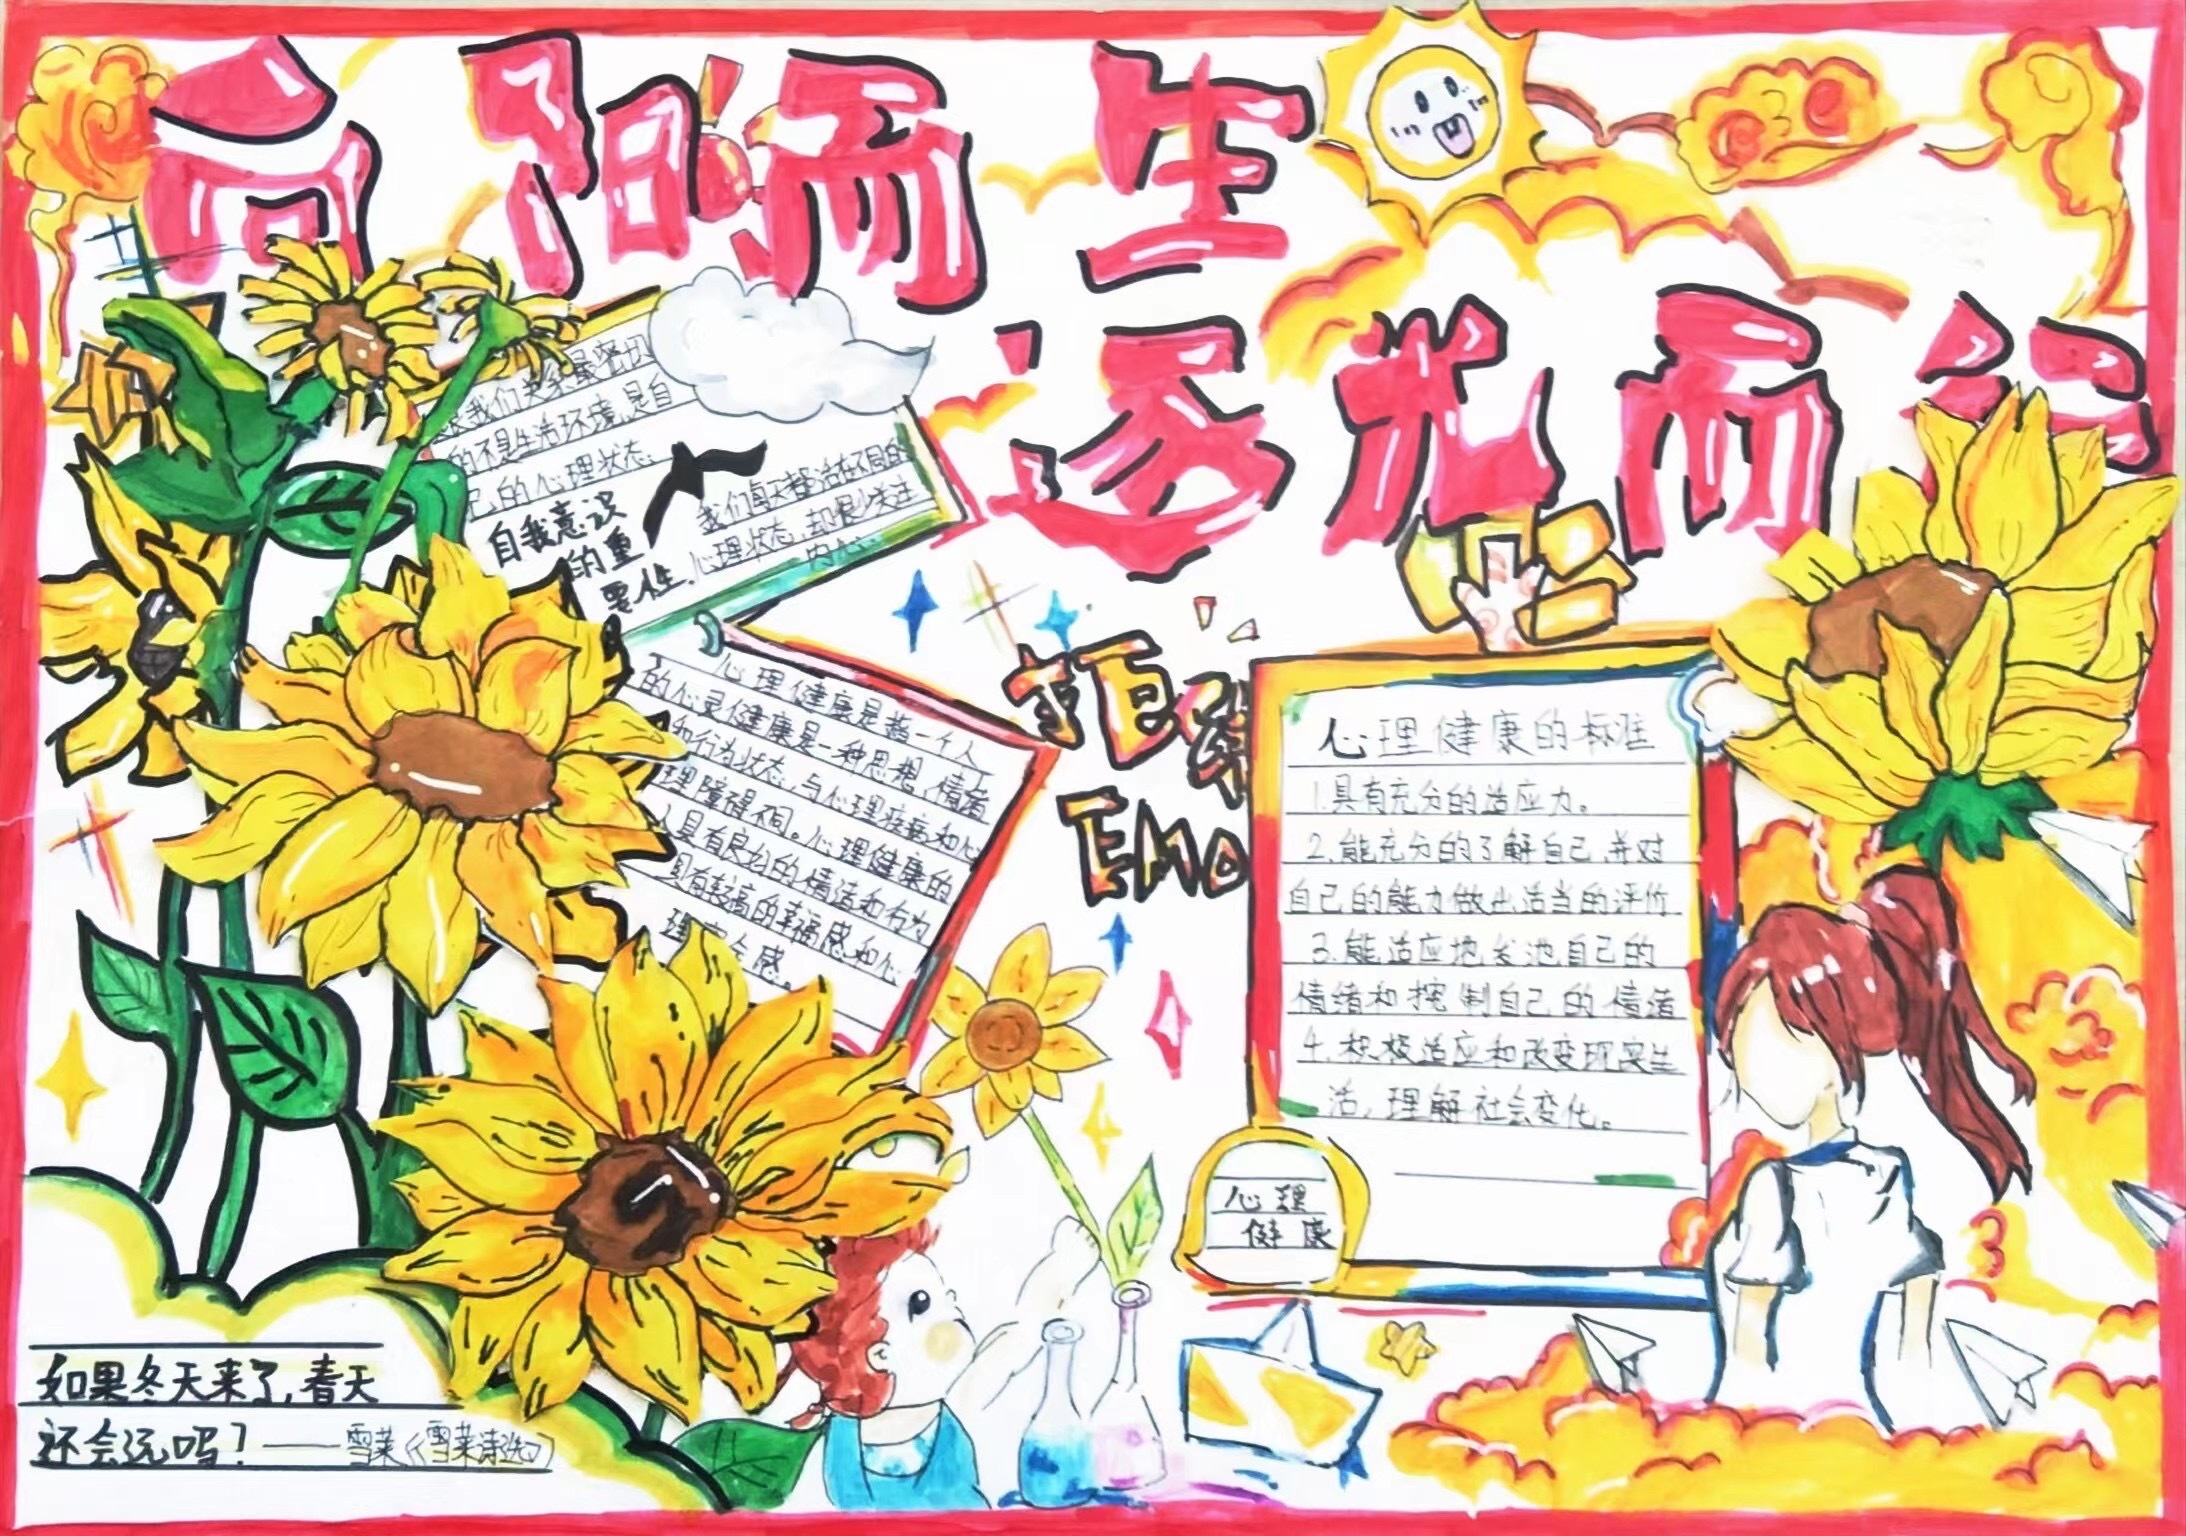 向阳而生
逐光而行
我们关系最密切
的不是生活环境,是自
己的心理状态。
自我意识
的重
要性
我们每天都活在不同的
心理状态,却很少关注
心理健康是指一个人
的心灵健康是一种思想、情绪
和行为状态,与心理疾病和心
理障碍不同。心理健康的
人具有良好的情绪和行为
具有较高的幸福感和心
理安全感。
拒绝
EMO
心理健康的标准
1.具有充分的适应力。
2.能充分的了解自己,并对
自己的能力做出适当的评价
3.能适应地发泄自己的
情绪和控制自己的情绪
4.积极适应和改变现实生
活,理解社会变化。
心理
健康
如果冬天来了,春天
还会远吗?——雪莱《雪莱诗选》